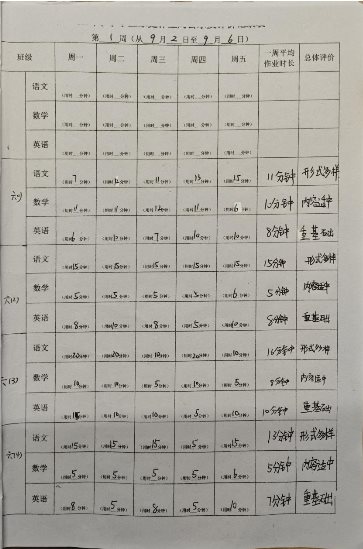 第 1 周（从 9 月 2 日至 9 月 6 日）
班级 周一 周二 周三 周四 周五 一周平均作业时长 总体评价
语文 （用时 分钟） （用时 分钟） （用时 分钟） （用时 分钟） （用时 分钟）
数学 （用时 分钟） （用时 分钟） （用时 分钟） （用时 分钟） （用时 分钟）
英语 （用时 分钟） （用时 分钟） （用时 分钟） （用时 分钟） （用时 分钟）
语文 （用时 7 分钟） （用时 12 分钟） （用时 11 分钟） （用时 13 分钟） （用时 15 分钟） 11分钟 形式多样
数学 （用时 11 分钟） （用时 11 分钟） （用时 12 分钟） （用时 11 分钟） （用时 分钟） 分钟 内容适中
英语 （用时 6 分钟） （用时 分钟） （用时 7 分钟） （用时 10 分钟） （用时 10 分钟） 8分钟 重基础
六(2) 语文 （用时15分钟） （用时15分钟） （用时15分钟） （用时15分钟） （用时15分钟） 15分钟 形式多样
数学 （用时 5 分钟） （用时 5 分钟） （用时 5 分钟） （用时 5 分钟） （用时 6 分钟） 5分钟 内容适中
英语 （用时 8 分钟） （用时 10 分钟） （用时 8 分钟） （用时 5 分钟） （用时 10 分钟） 8分钟 重基础
六(3) 语文 （用时20分钟） （用时20分钟） （用时10分钟） （用时20分钟） （用时10分钟） 16分钟 形式多样
数学 （用时 10 分钟） （用时 10 分钟） （用时 5 分钟） （用时 10 分钟） （用时 5 分钟） 8分钟 内容适中
英语 （用时 分钟） （用时 10 分钟） （用时 10 分钟） （用时 5 分钟） （用时 10 分钟） 10分钟 重基础
六(4) 语文 （用时15分钟） （用时15分钟） （用时15分钟） （用时 5 分钟） （用时15分钟） 13分钟 形式多样
数学 （用时 5 分钟） （用时 5 分钟） （用时 5 分钟） （用时 5 分钟） （用时 6 分钟） 5分钟 内容适中
英语 （用时 8 分钟） （用时 5 分钟） （用时 8 分钟） （用时 5 分钟） （用时 10 分钟） 7分钟 重基础